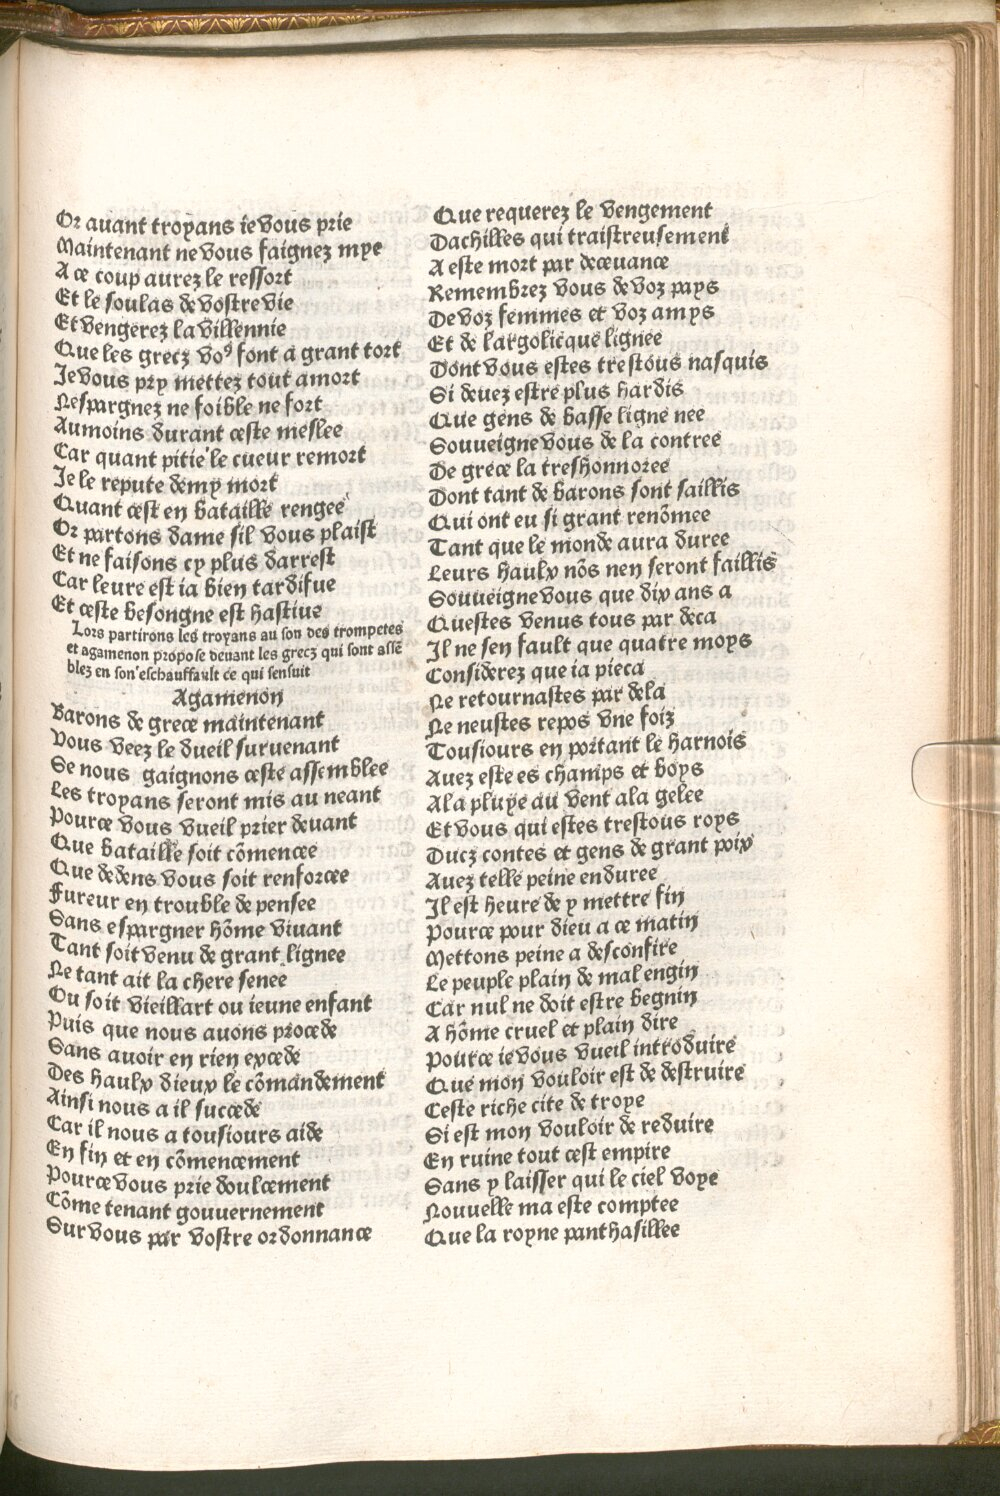 Or auant troyans ie vous prie
Maintenant ne vous faignez mye
A ce coup aurez le ressort
Et le soulas de vostre vie
Et vengerez la villennie
Que les grecz voꝰ font a grant tort
Je vous pry mettez tout amort
Nespargnez ne foible ne fort
Aumoins durant ceste meslee
Car quant pitie le cueur remort
Je le repute demy mort
Quant cest en bataille rengee
Or partons dame sil vous plaist
Et ne faisons cy plus darrest
Car leure est ia bien tardifue
Et ceste besongne est hastiue
Lors partirons les troyans au son des trompetes
et agamenon propose deuant les grecz qui sont assẽ
blez en son eschauffault ce qui sensuit
Agamenon
Barons de grece maintenant
Vous veez le dueil suruenant
Se nous gaignons ceste assemblee
Les troyans seront mis au neant
Pource vous vueil prier deuant
Que bataille soit cõmencee
Que dedens vous soit renforcee
Fureur en trouble de pensee
Sans espargner hõme viuant
Tant soit venu de grant lignee
Ne tant ait la chere senee
Ou soit vieillart ou ieune enfant
Puis que nous auons procede
Sans auoir en rien excede
Des haulx dieux le cõmandement
Ainsi nous a il succede
Car il nous a tousiours aide
En fin et en cõmencement
Pource vous prie doulcement
Cõme tenant gouuernement
Sur vous par vostre ordonnance
Que requerez le vengement
Dachilles qui traistreusement
A este mort par deceuance
Remembrez vous de voz pays
De voz femmes et voz amys
Et de largolicque lignee
Dont vous estes trestous nasquis
Si deuez estre plus hardis
Que gens de basse ligne nee
Souueigne vous de la contree
De grece la treshonnoree
Dont tant de barons sont saillis
Qui ont eu si grant renõmee
Tant que le monde aura duree
Leurs haulx nõs nen seront faillis
Souueigne vous que dix ans a
Questes venus tous par deca
Il ne sen fault que quatre moys
Considerez que ia pieca
Ne retournastes par dela
Ne neustes repos vne foiz
Tousiours en portant le harnois
Auez este es champs et boys
Ala pluye au vent ala gelee
Et vous qui estes trestous roys
Ducz contes et gens de grant poix
Auez telle peine enduree
Il est heure de y mettre fin
Pource pour dieu a ce matin
Mettons peine a desconfire
Le peuple plain de mal engin
Car nul ne doit estre begnin
A hõme cruel et plain dire
Pource ie vous vueil introduire
Que mon vouloir est de destruire
Ceste riche cite de troye
Si est mon vouloir de reduire
En ruine tout cest empire
Sans y laisser qui le ciel voye
Nouuelle ma este comptee
Que la royne panthasillee